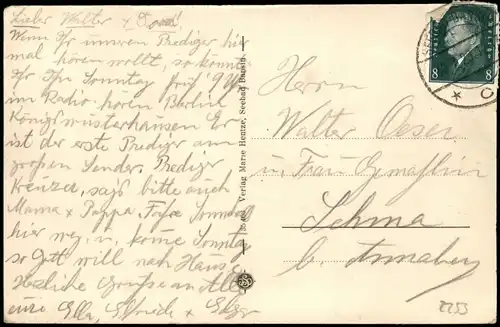 Lieber Walter x
Wenn Ihr unseren Prediger hier
mal hören wollt, so könnt
Ihr Ihn Sonntag früh 9 Uhr
im Radio hören Berlin
Königswusterhausen Er
ist der erste Prediger am
großen Sender. Prediger
Kreuzer, sags bitte auch
Mama x Pappa.
hier weg, u. komme Sonntag
so Gott will nach Hause
Herzliche Grüße an Alle
eure Ella, Elfriede x
Verlag Marie Hentze, Seebad Bansin.
DEUTSCHES REICH
8 8
Herrn
Walter Oeser
u Frau Gemahlin
Sehma
b. Annaberg
2253